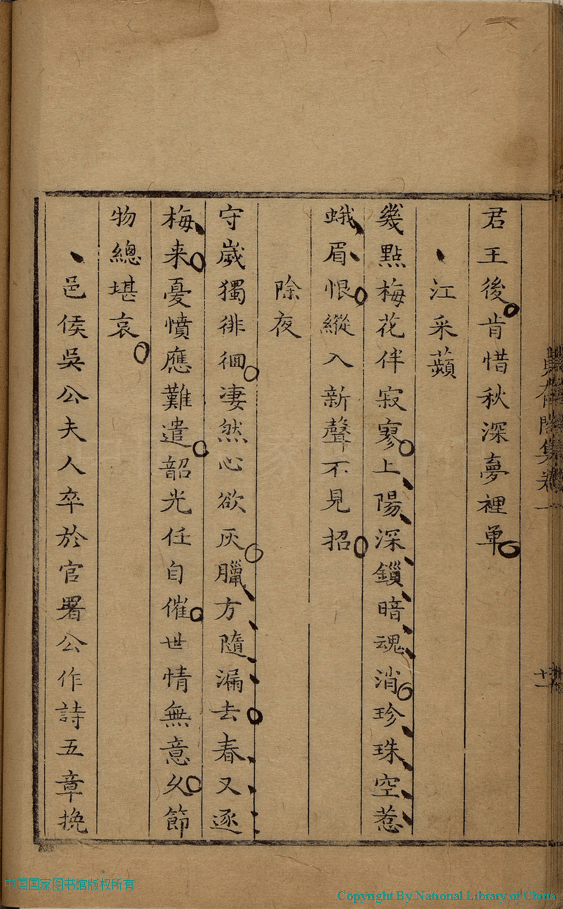 君王後肯惜秋深夢裡單
江采蘋
幾點梅花伴寂寥上陽深鎖暗魂消珍珠空惹
蛾眉恨縱入新聲不見招
除夜
守歲獨徘徊淒然心欲灰臘方隨漏去春又逐
梅来憂憤應難遣韶光任自催世情無意久節
物總堪哀
邑侯吳公夫人卒於官署公作詩五章挽
中国国家图书馆版权所有
Copyright By National Library of China